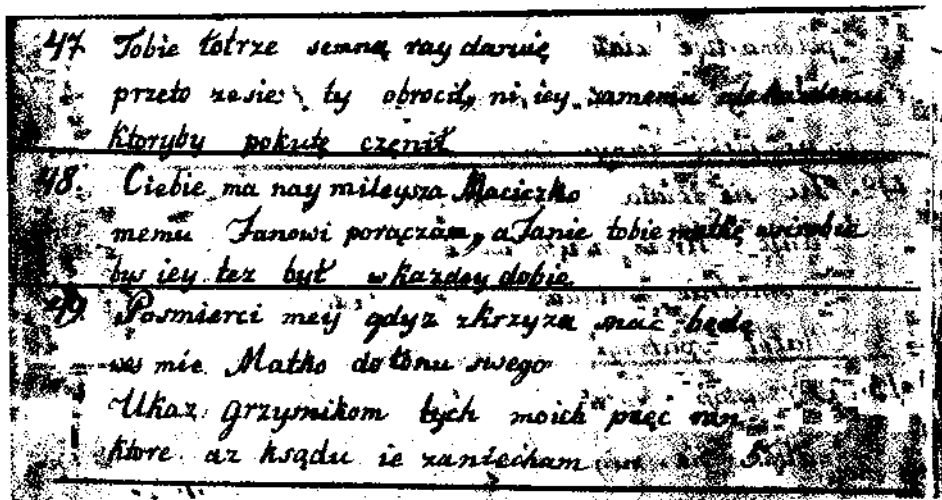 47 Tobie łotrze semną ray daruię
przeto zasię ty obrocił, ni iey samemu
ktoryby pokutę częnił
48. Ciebie ma nay mileysza Maciczko
memu Janowi porączám, a Janie tobie matkę
bys iey tez był w kazdey dobie
49 Posmierci meij gdyz zkrzyza snać będę
wes mie Matko do łonu swego
Ukaz grzysnikom tych moich pięć ran
ktore az ksądu ie zaniecham